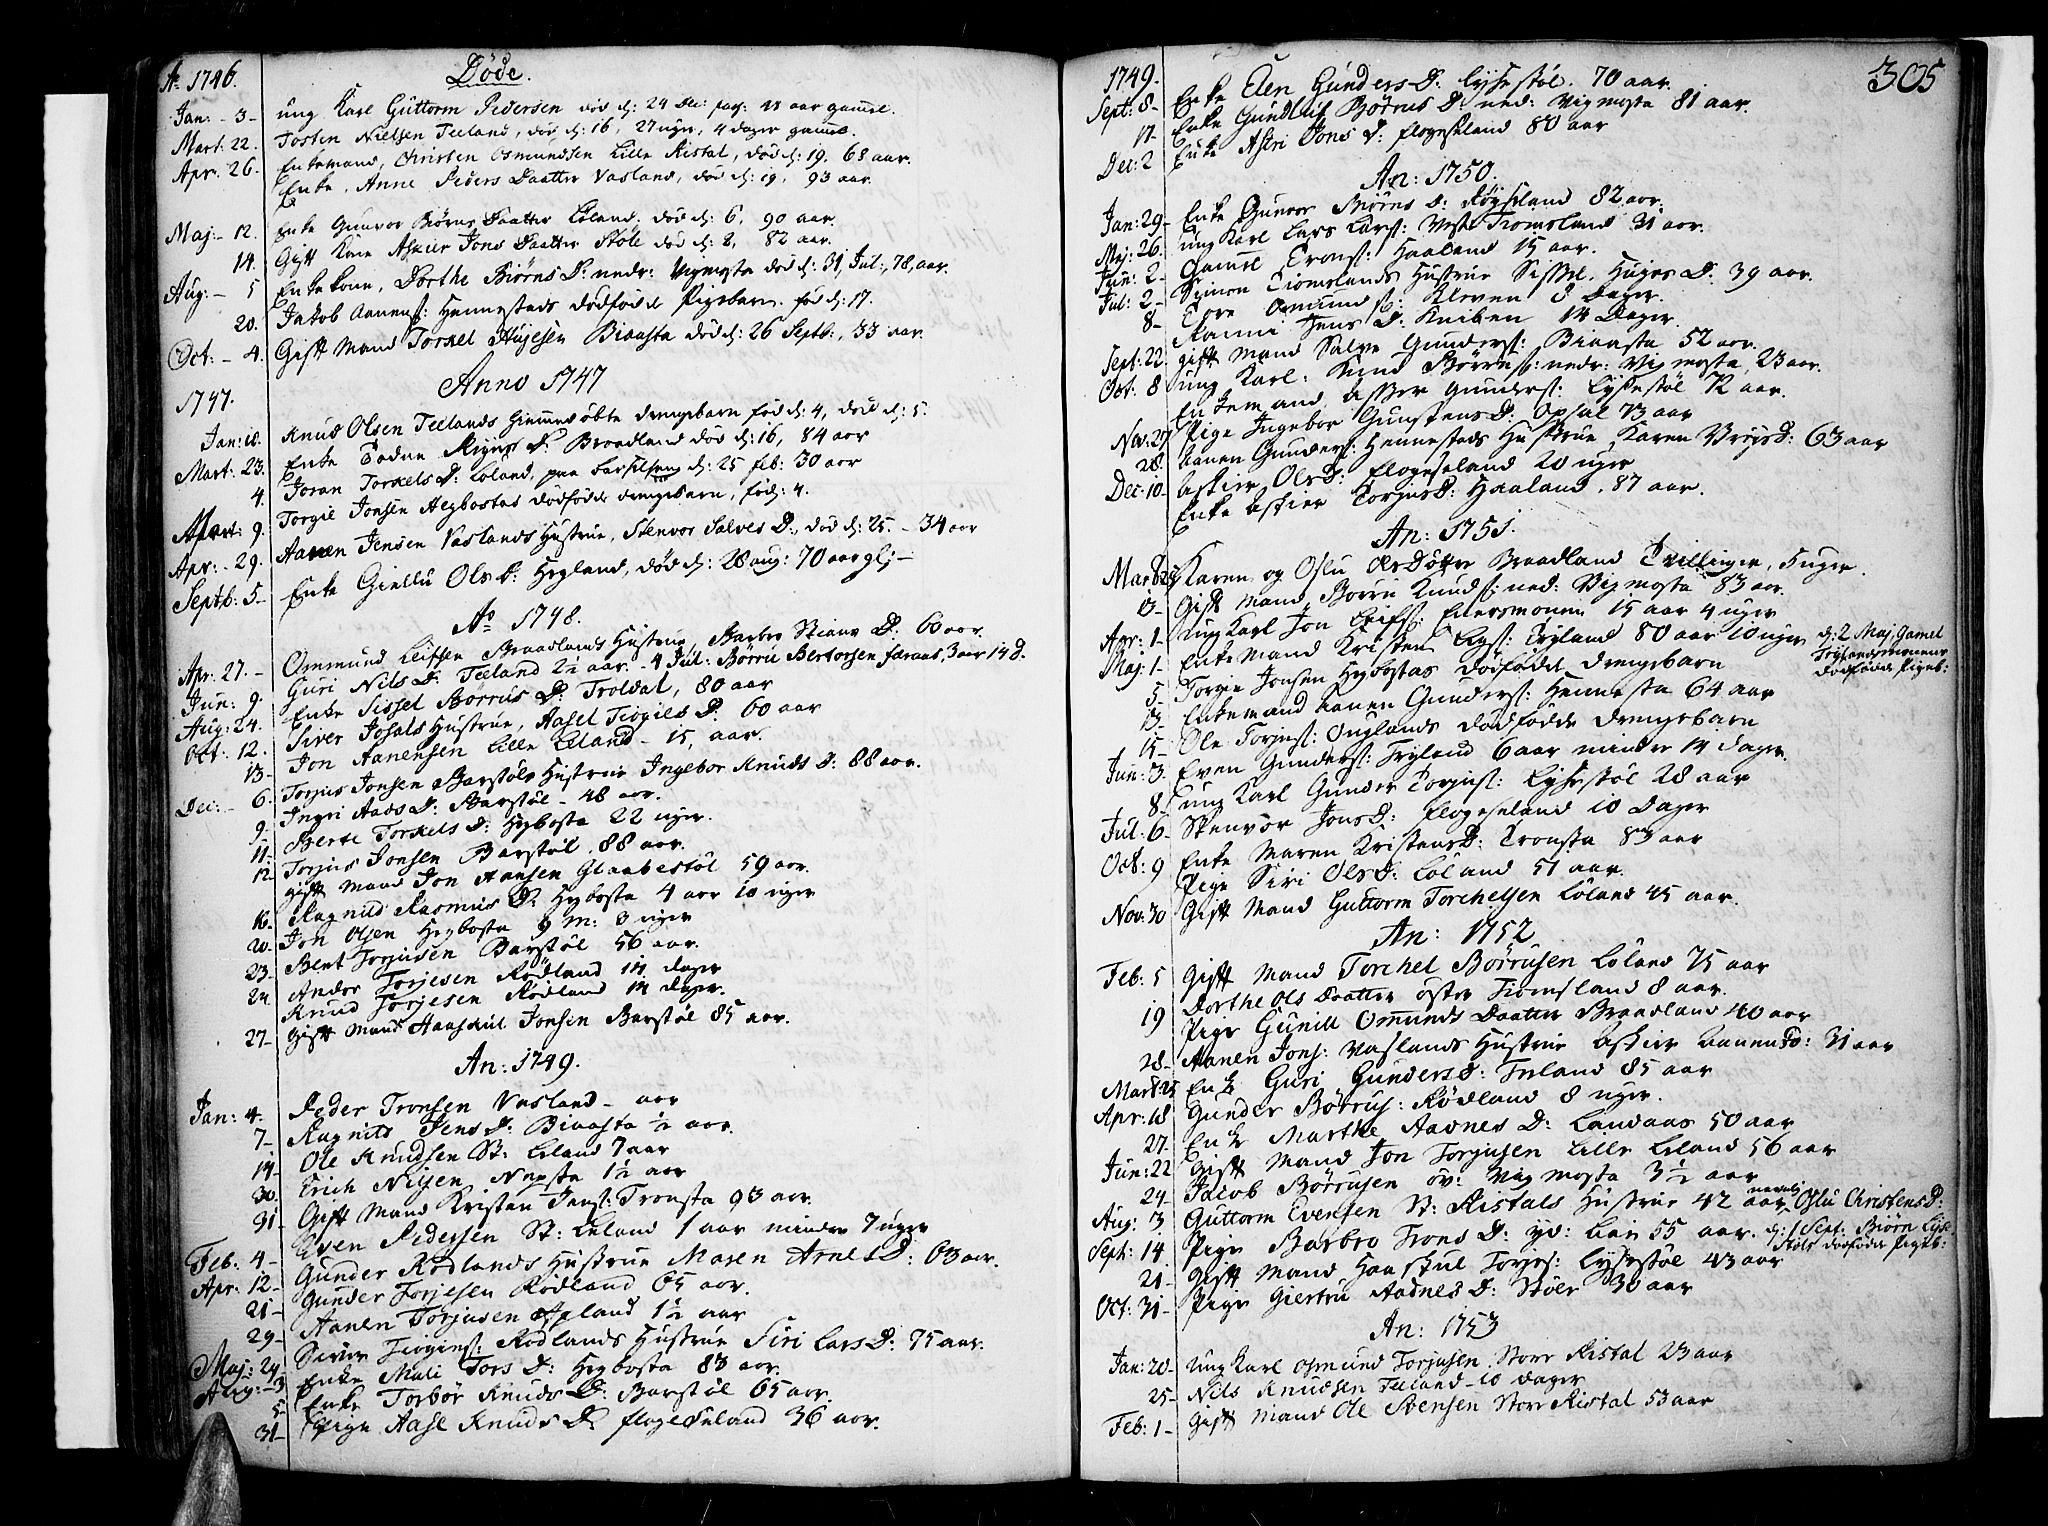 Ao 1746. Døde.
Jan: 3 ung Karl Guttorm Pedersen død d: 24 Dec: 18 aar gamel.
Mart: 22. Josten Nielsen Teeland, død d: 16, 27 uger, 4 dager gamel.
Apr. 26. Enkemand, Christen Osmundsen Lille Ristal, død d: 19. 68 aar.
Enke, Anne Peders Daatter Vasland, død d: 19, 93 aar.
Maj 12. Enke Gunvor Biørns Daatter Løland. død d: 6, 90 aar.
14. Gift Kone Askier Jons Daatter Støle død d: 8, 82 aar.
Aug: 5 Enkekone, Dorthe Biørns D: nedr: Vigmosta død d: 31, Jul:, 78, aar.
20. Jakob Aanens: Hennestads dødfødde Pigebarn. fød d: 17.
Oct: 4. Gift Mand Torkel Hujesen Biaasta død d: 26 Septb:, 33 aar.
Anno 1747
1747.
Jan: 18. Knud Olsen Teelands hiemedøbte drengebarn fød d: 4, død d: 5.
Mart: 23. Enke Todne D: Braadland død d: 16, 84 aar
4. Joran Torkels D: Løland, paa barselseng d: 25 feb: 30 aar
Mart: 9. Torgie Jonsen Hegbostas dødfødde drengebarn, fød: 4.
Apr: 29. Aanen Jensen Vaslands Hustrue, Stenvor Salves D:, død d: 25. 34 aar
Septb: 5 Enke Giellu Ols D: Hegland, død d: 28 aug: 70 aar gl:
Ao 1748.
Apr. 27. Ommund Leifsen Braadlands Hustrue, Barbro Stians D: 60 aar.
Jun: 9. Guri Nils D: Teeland 2½ aar. 4 Jul: Børru Bertorsen 3 aar 14 d.
Aug: 24. Enke Sissel Børrus D: Troldal, 80 aar
Oct: 12. Siver Josals Hustrue, Aasel Tiøgils D: 60 aar
13 Jon Aanensen Lille Leland 15, aar.
Dec: 6. Torjus Jonsen Barstøls Hustrue Ingebor Knuds D: 88 aar.
9 Ingri Aads D: Barstøl 48 aar.
11. Berte Torkels D: Hegbosta 22 uger.
12 Torjus Jonsen Barstøl 88 aar.
gift Mand Jon Hansen Glaabestøl 59 aar.
16. Ragnild Rasmus D: Hegbosta 4 aar 10 uger
20. Jon Olsen Hegbosta 9 m: 3 uger
23 Bent Torjusen Barstøl 56 aar.
24 Ander Torjesen Rødland 14 dager
Knud Torjesen Rødland 14 dager.
27 Gift Mand Haaskul Jonsen Barstøl 85 aar.
An: 1749.
Jan: 4. Peder Tronsen Vasland aar
7 Ragnild Jens D: Biaasta ½ aar.
14 Ole Knudsen St: Leland 7 aar
30 Erich Nilsen Nepsta 1½ aar
31 Gift Mand Kristen Jens: Tronsta 93 aar.
Feb: 4 Even Pedersen St: Leland 1 aar minder 7 uger
Apr: 12 Gunder Rødlands Hustrue Maren Arnes D: 63 aar.
21 Gunder Torjesen Rødland 65 aar.
29 Aanen Torjusen Øpland 1½ aar
Maj: 24 Siver Rødlands Hustrue Siri Lars D: 75 aar.
Aug: 3 Enke Mali Tors D: Hegbosta 83 aar.
5 Enke Torbør Knuds D: Barstøl 65 aar.
31 Pige Aase Knuds D: flogeseland 36 aar.
305
1749.
Sept: 8 Enke Elen Gunders D: Lyhestøl. 70 aar.
17 Enke Gundlei Børrus D: ned: Vigmosta 81 aar.
Dec: 2 Enke Astri Jons D: flogeseland 80 aar
An: 1750.
Jan: 29 Enke Gunvor Biørns D: Røyseland 82 aar.
Maj: 26 ung Karl Lars Lars: Vest Tiomsland 31 aar.
Jun: 2 Gamel Trons: Haaland 15 aar.
Jul: 2 Symon Tiomslands Hustrue Sissel Hujes D: 39 aar.
8 Tore Osmunds: Kleven 8 Dager.
Ranni Jens D: Kniben 14 Dager.
Sept: 22 gift Mand Salve Gunders: Biaasta 52 aar.
Oct. 8 ung Karl: Knud Børrus: nedr: Vigmosta, 23 aar.
Enkemand Asser Gunders: Lyhestøl 72 aar.
Nov: 27 Pige Ingebor Gunstens D: Opsal 73 aar
28. Aanen Gunders: Hennestads Hustrue, Karen D: 63 aar
Dec: 10 Askier Ols D: flogeseland 20 uger
Enke Askier Torjus D: Haaland. 87 aar.
An: 1751.
Mart: Karen og Oslu Ols Døttre Braadland Tvillinger, 5 uger.
13 Gift Mand Børru Knuds: ned: Vigmosta 83 aar.
Apr: 1 Ung Karl Jon Leifs: Eikersmonen 15 aar 4 uger
Maj: 1 Enke Mand Kristen Tryland 80 aar 10 uger d: 2 Maj, Gamel
Trylandsmonens
dødfødde Pigeb:
5 Torgie Jonsen Hegbostas dødfødde drengebarn
13 Enkemand Aanen Gunders: Hennesta 64 aar
15 Ole Torjus: Øuglands dødfødde drengebarn
Jun: 3. Even Gunders: Trylend 6 aar minder 14 dager.
8 ung Karl Gunder Torjus: Lyhestøl 28 aar
Jul: 6 Stenvor Jons D: flogeseland 10 Dager
Oct: 9 Enke Maren Kristens D: Tronsta 83 aar
Pige Siri Ols D: Løland 51 aar.
Nov: 30 Gift Mand Guttorm Torchelsen Løland 45 aar.
An: 1752
Feb: 5 Gift Mand Torchel Børrusen Løland 75 aar
19 Dorthe Ols Daatter øster Tiomsland 8 aar.
Pige Gunill Omunds Daatter Braadland 40 aar
28 Aanen Jons: Vaslands Hustrue Askier Aanens D: 31 aar
Mart: 25 Enke Guri Gunders D: Inland 85 aar
Apr: 18 Gunder Børrus: Rødland 8 uger.
27. Enke Marthe Aadnes D: Landaas 50 aar
Jun: 22 Gift Mand Jon Torjusen Lille Leland 56 aar
24 Jacob Børrusen øv: Vigmosta 3½ aar
Aug: 3 Guttorm Evensen St: Ristals Hustrue 42 aar Oslu Christens D:
Sept: 14 Pige Barbro Trons D: yd: Lan 55 aar. d: 1 Sept: Biørn Lyhe
støls dødfødde Pigeb:
21 Gift Mand Haaskul Torjes: Lyhestøl 43 aar
Oct: 31 Pige Giertru Aadnes D: Støle 30 aar
An: 1753
Jan: 20 Ung Karl Osmund Torjusen Store Ristal 23 aar
25 Nils Knudsen Teeland 10 dager
Feb: 1 Gift Mand Ole Stensen Store Ristal 53 aar